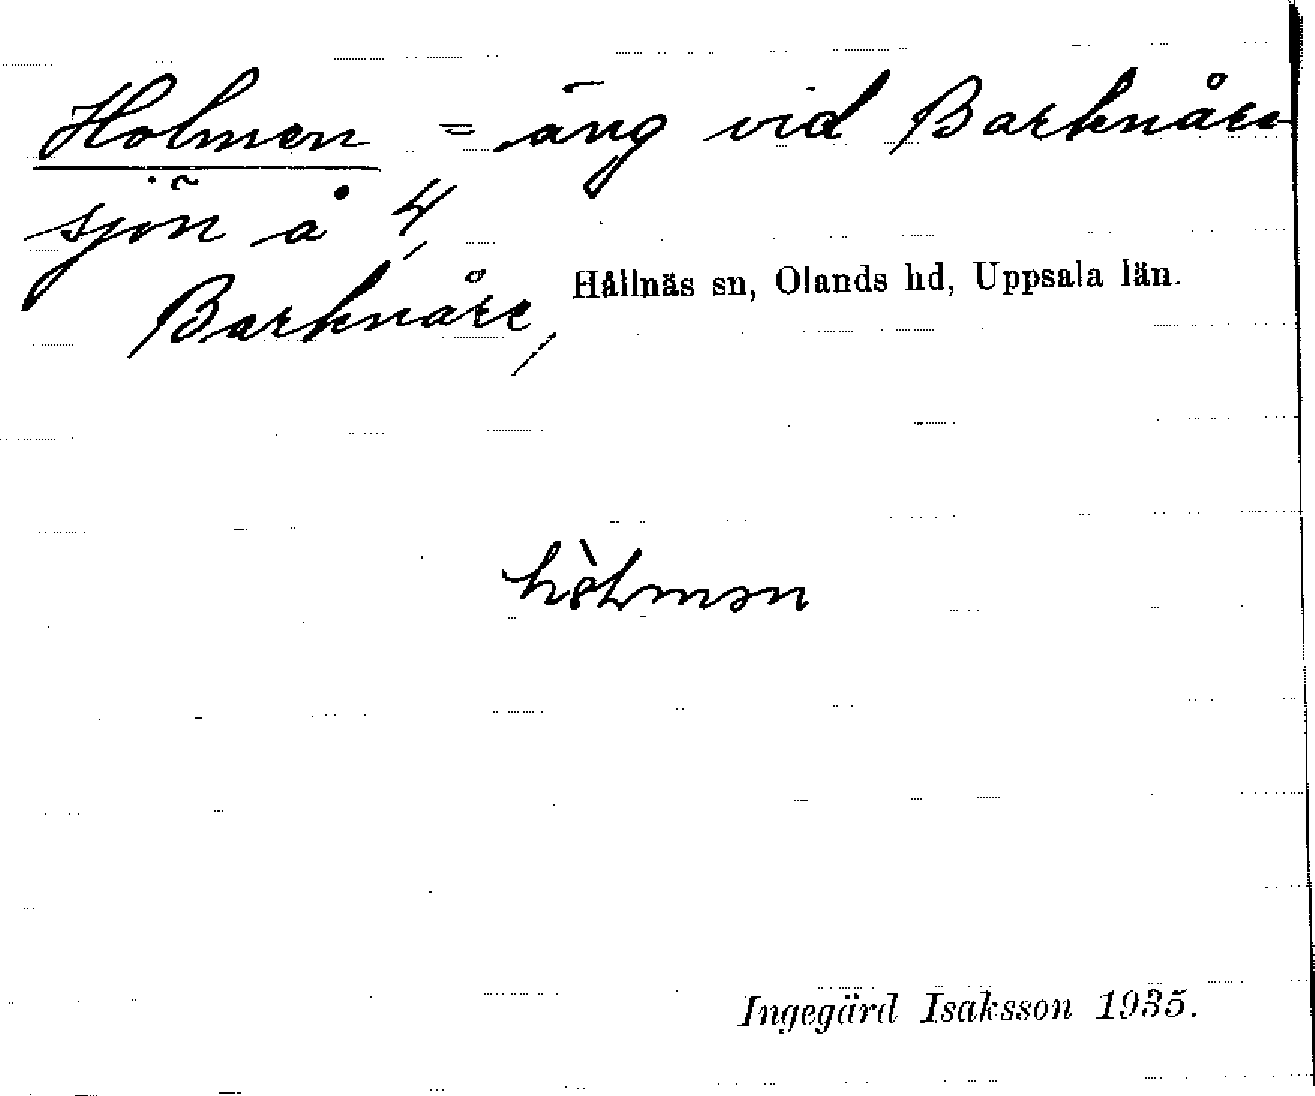 Holmen = äng vid Barknåre
sjön å 4,
Barknåre, Hållnäs sn, Olands hd, Uppsala län.
Ingegärd Isaksson 1935.